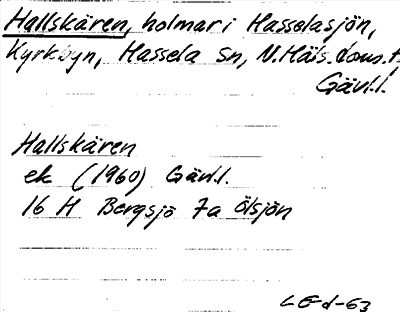 Hallskären, holmar i Hasselasjön,
Kyrkbyn, Hassela sn, N. Häls. doms. t.
Gävl.l.
Hallskären
ek (1960) Gävl.l.
16 H Bergsjö 7a Ölsjön